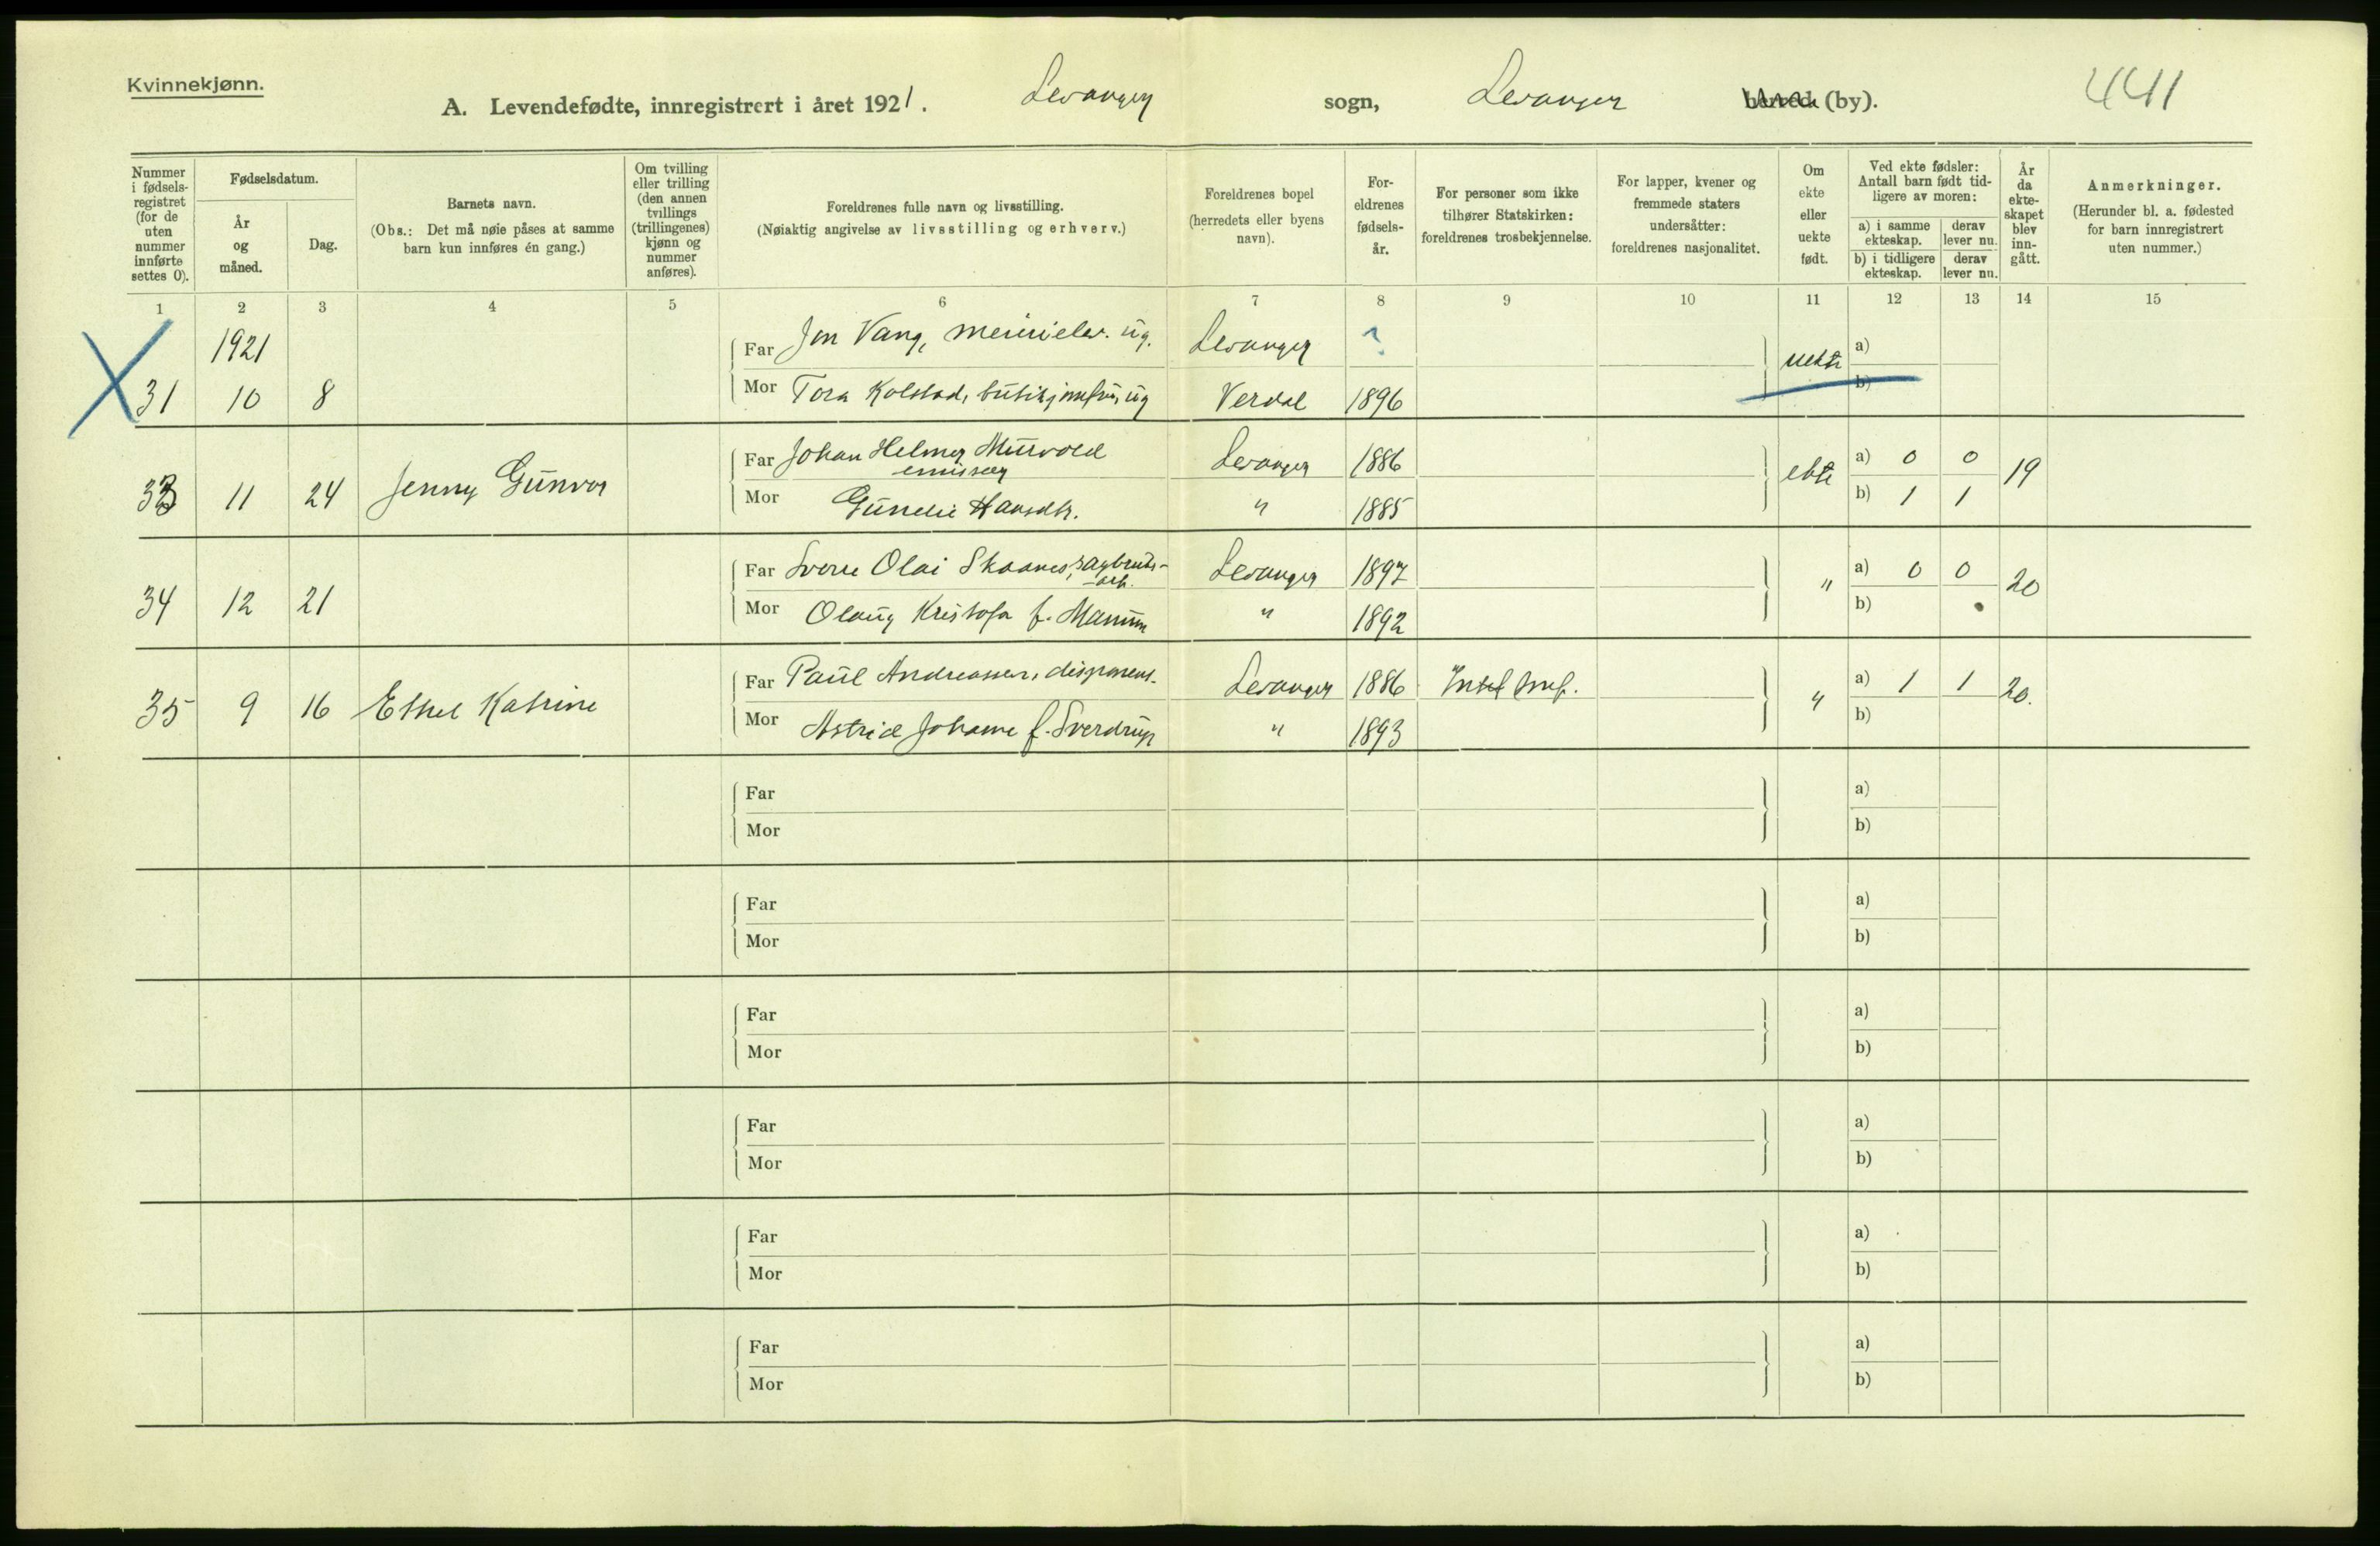 Kvinnekjønn.
A. Levendefødte, innregistrert i året 1921. Levanger sogn, Levanger herred (by). 441
Nummer i fødselsregistret (for de uten nummer innførte settes 0).
Fødselsdatum.
År og måned.
Dag.
Barnets navn.
(Obs.: Det må nøie påses at samme barn kun innføres én gang.)
Om tvilling eller trilling (den annen tvillings (trillingenes) kjønn og nummer anføres).
Foreldrenes fulle navn og livsstilling.
(Nøiaktig angivelse av livsstilling og erhverv.)
Foreldrenes bopel (herredets eller byens navn).
Foreldrenes fødselsår.
For personer som ikke tilhører Statskirken: foreldrenes trosbekjennelse.
For lapper, kvener og fremmede staters undersåtter: foreldrenes nasjonalitet.
Om ekte eller uekte født.
Ved ekte fødsler: Antall barn født tidligere av moren:
a) i samme ekteskap. derav lever nu.
b) i tidligere ekteskap. derav lever nu.
År da ekteskapet blev inngått.
Anmerkninger.
(Herunder bl. a. fødested for barn innregistrert uten nummer.)
1 2 3 4 5 6 7 8 9 10 11 12 13 14 15
1921
Far Jon Vang, meierielev. ug. Levanger ? uekte a)
31 10 8 Mor Tora Kolstad, butikjomfru, ug Verdal 1896 b)
Far Johan Helmer Murvold Levanger 1886 ekte a) 0 0 19
emissær
33 11 24 Jenny Gunvor Mor Gunelie Hansdtr. " 1885 b) 1 1
Far Sverre Olai Skaanes, sagbruks-arb. Levanger 1897 " a) 0 0 20
34 12 21 Mor Olaug Kristofa f. " 1892 b)
Far Paul Andreassen, disponent. Levanger 1886 " a) 1 1 20.
35 9 16 Ethel Katrine Mor Astrid Johanne f. Sverdrup " 1893 b)
Far a)
Mor b)
Far a)
Mor b)
Far a)
Mor b)
Far a)
Mor b)
Far a)
Mor b)
Far a)
Mor b)